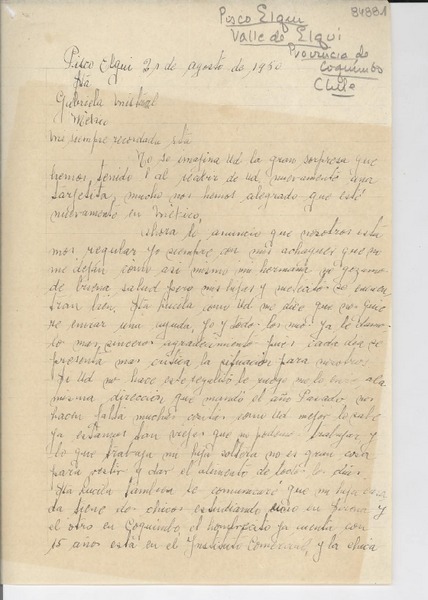 84881
Pisco Elqui
Valle de Elqui
Provincia de
Coquimbo
Chile
Pisco Elqui 21 de agosto de 1950
Sta
Gabriela Mistral
Mexico
Mi siempre recordada sta
No se imagina Ud la gran sorpresa que
hemos tenido al recibir de Ud nuevamente una
tarjesita, mucho nos hemos alegrado que esté
nuevamente en México,
Ahora le anuncio que nosotros esta
mos regular yo siempre con mis achaques que no
me dejan como asi mismo mi hermana
de buena salud pero mis hijas y Melcado se encuen
tran bien. Sta Lucila como Ud me dice que nos quie
re enviar una ayuda, yo y todos los mios ya le damos
lo mas sinceros agradecimiento pues cada dia se
presenta mas critica la situación para nosotros
Si Ud nos hace este regalito le ruego me lo envie a la
misma dirección que mandó el año Pasado nos
hacen falta mucho como Ud mejor lo sabe
ya estamos tan viejas que no podemos trabajar y
lo que trabaja mi hija soltera no es gran cosa
para vestir y dar el alimento de todos los dias.
Sta Lucila tambien le comunicaré que mi hija casa
da tiene dos chicos estudiando uno en Serena y
el otro en Coquimbo, el hombrecito ya cuenta con
15 años está en el Instituto Comercial, y la chica